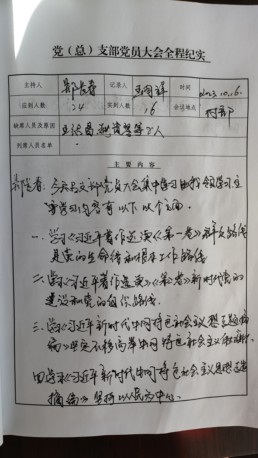 党（总）支部党员大会全程纪实
主持人 郭长春 记录人 时间 2023.10.16.
应到人数 24 实到人数 16 会议地点 村部
缺席人员及原因 等 人
列席人员名单
主要内容
郭长春：今天召开支部党员大会集中学习由我领学习主
要学习内容有以下 个方面.
一、学习《习近平著作选读》《第一卷》群众路线
是党的生命线和根本工作路线
二、学习《习近平著作选读》《第一卷》新时代党的
建设和党的组织路线.
三、学习《习近平新时代中国特色社会主义思想专题摘
编》坚定不移高举中国特色社会主义伟大旗帜.
四、学习《习近平新时代中国特色社会主义思想专题
摘编》坚持以人民为中心.